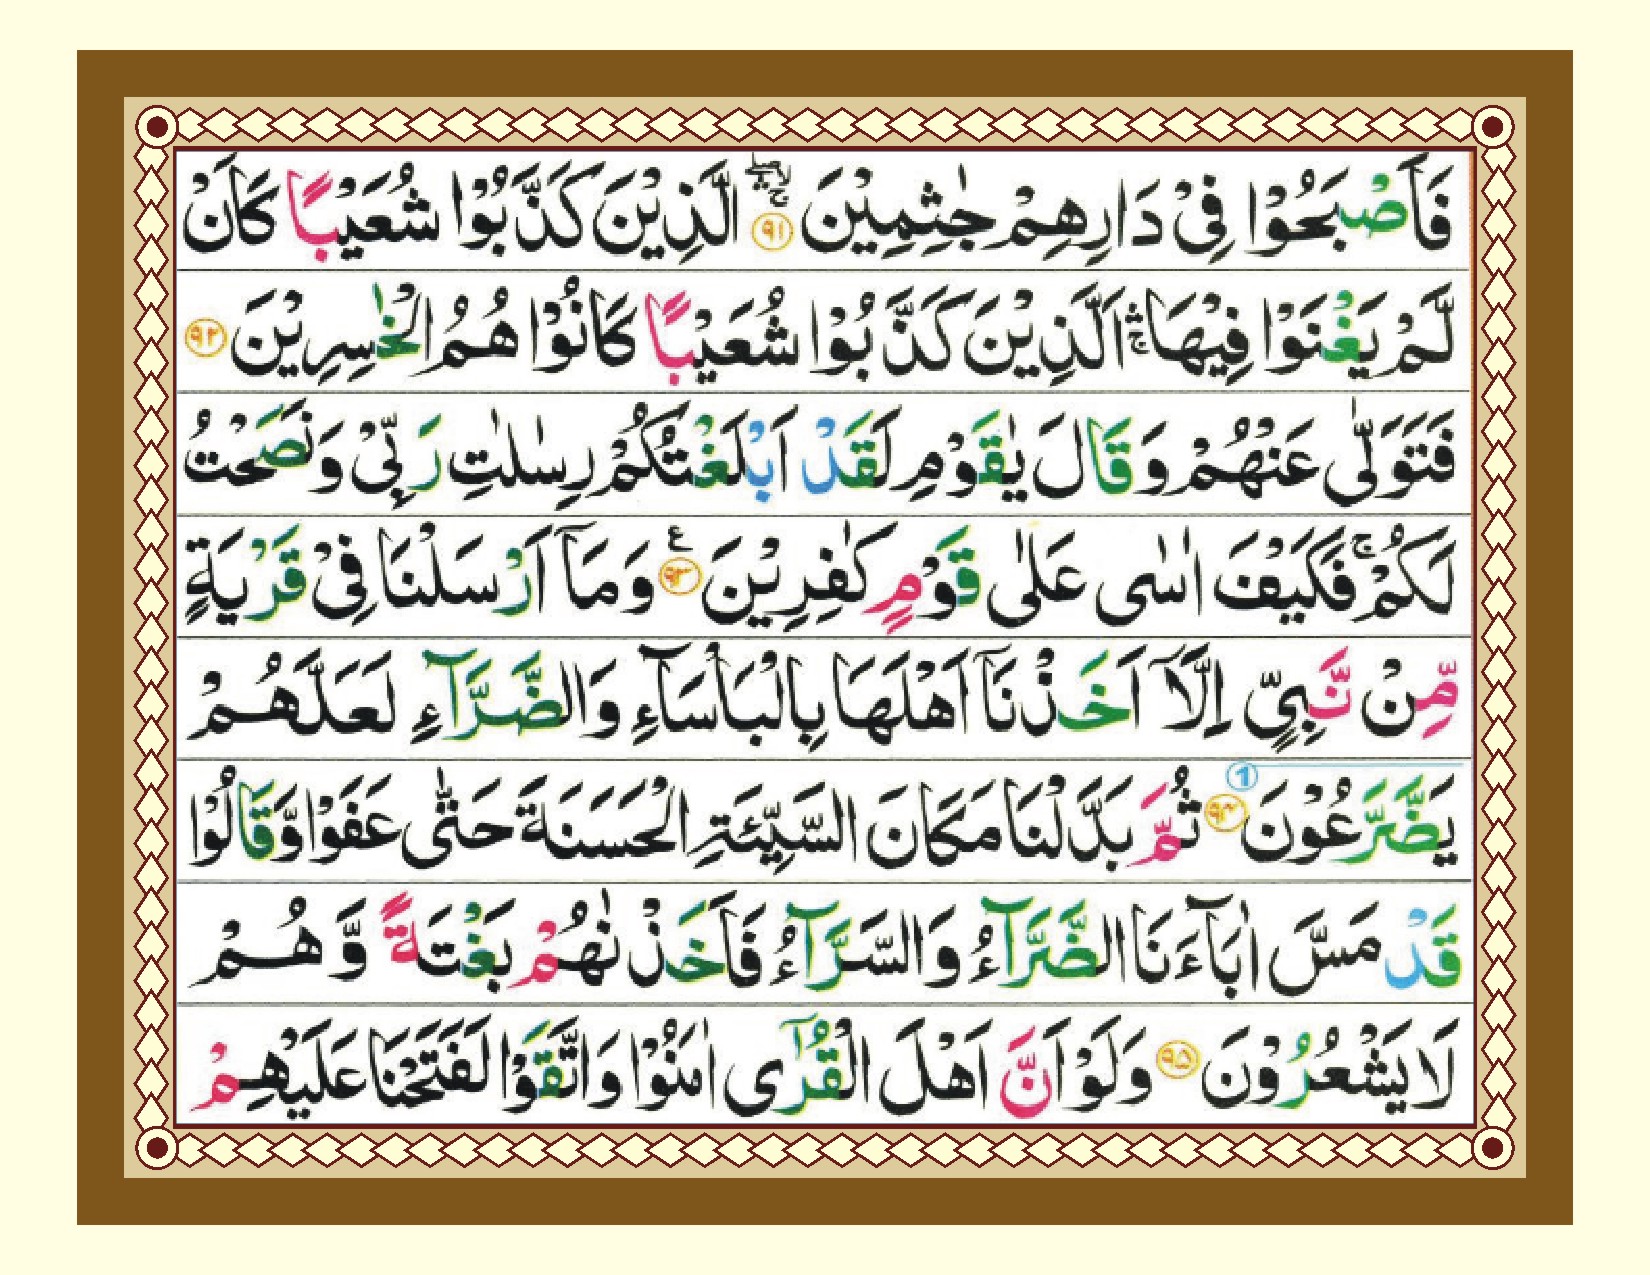 فَاَصْبَحُوْا فِیْ دَارِهِمْ جٰثِمِیْنَ ۛۚۖ ﴿۹۱﴾ الَّذِیْنَ كَذَّبُوْا شُعَیْبًا كَاَنْ
لَّمْ یَغْنَوْا فِیْهَا ۛۚ اَلَّذِیْنَ كَذَّبُوْا شُعَیْبًا كَانُوْا هُمُ الْخٰسِرِیْنَ ﴿۹۲﴾
فَتَوَلّٰی عَنْهُمْ وَقَالَ یٰقَوْمِ لَقَدْ اَبْلَغْتُكُمْ رِسٰلٰتِ رَبِّیْ وَنَصَحْتُ
لَكُمْ ۚ فَكَیْفَ اٰسٰی عَلٰی قَوْمٍ كٰفِرِیْنَ ﴿۹۳﴾ ع وَمَاۤ اَرْسَلْنَا فِیْ قَرْیَةٍ
مِّنْ نَّبِیٍّ اِلَّاۤ اَخَذْنَاۤ اَهْلَهَا بِالْبَاْسَآءِ وَالضَّرَّآءِ لَعَلَّهُمْ
یَضَّرَّعُوْنَ ﴿۹۴﴾ 1 ثُمَّ بَدَّلْنَا مَكَانَ السَّیِّئَةِ الْحَسَنَةَ حَتّٰی عَفَوْا وَّقَالُوْا
قَدْ مَسَّ اٰبَآءَنَا الضَّرَّآءُ وَالسَّرَّآءُ فَاَخَذْنٰهُمْ بَغْتَةً وَّهُمْ
لَا یَشْعُرُوْنَ ﴿۹۵﴾ وَلَوْ اَنَّ اَهْلَ الْقُرٰۤی اٰمَنُوْا وَاتَّقَوْا لَفَتَحْنَا عَلَیْهِمْ